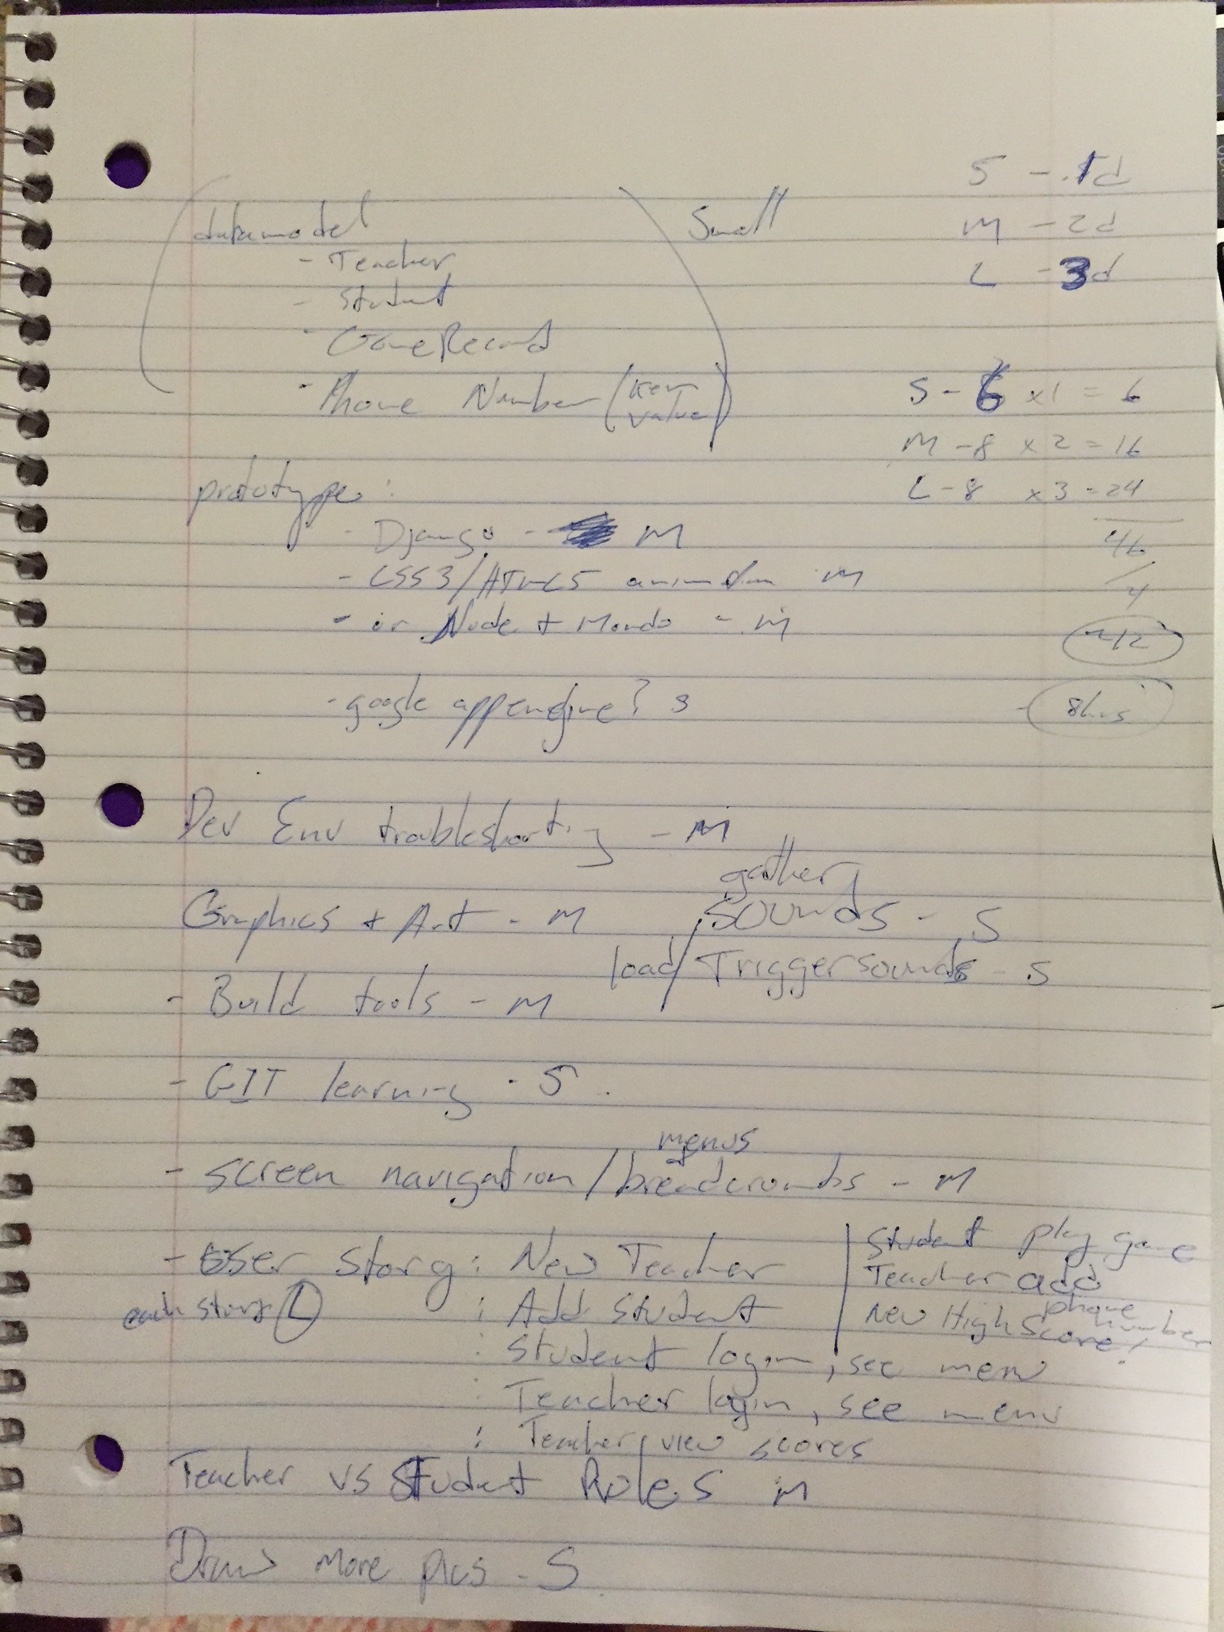 S - 1d
M - 2d
L - 3d
datamodel
Small
- Teacher
- Student
- GameRecord
- Phone Number (key value)
S - 6 x1 = 6
M - 8 x 2 = 16
L - 8 x 3 = 24
46
/4
~12
8hrs
prototype:
- Django - M
- CSS3/HTML5 animation M
- or Node + Mondo - M
- google appengine?
Dev Env troubleshooting - M
Graphics + Art - M
gather sounds - S
load/Trigger sounds - S
- Build tools - M
- GIT learning - S
menus
- screen navigation/breadcrumbs - M
- User story: New Teacher
each story L
: Add Student
: Student login, see menu
: Teacher login, see menu
: Teacher view scores
Student play game
Teacher add phone number
New High Score!
Teacher vs Student Roles M
Draw more pics - S